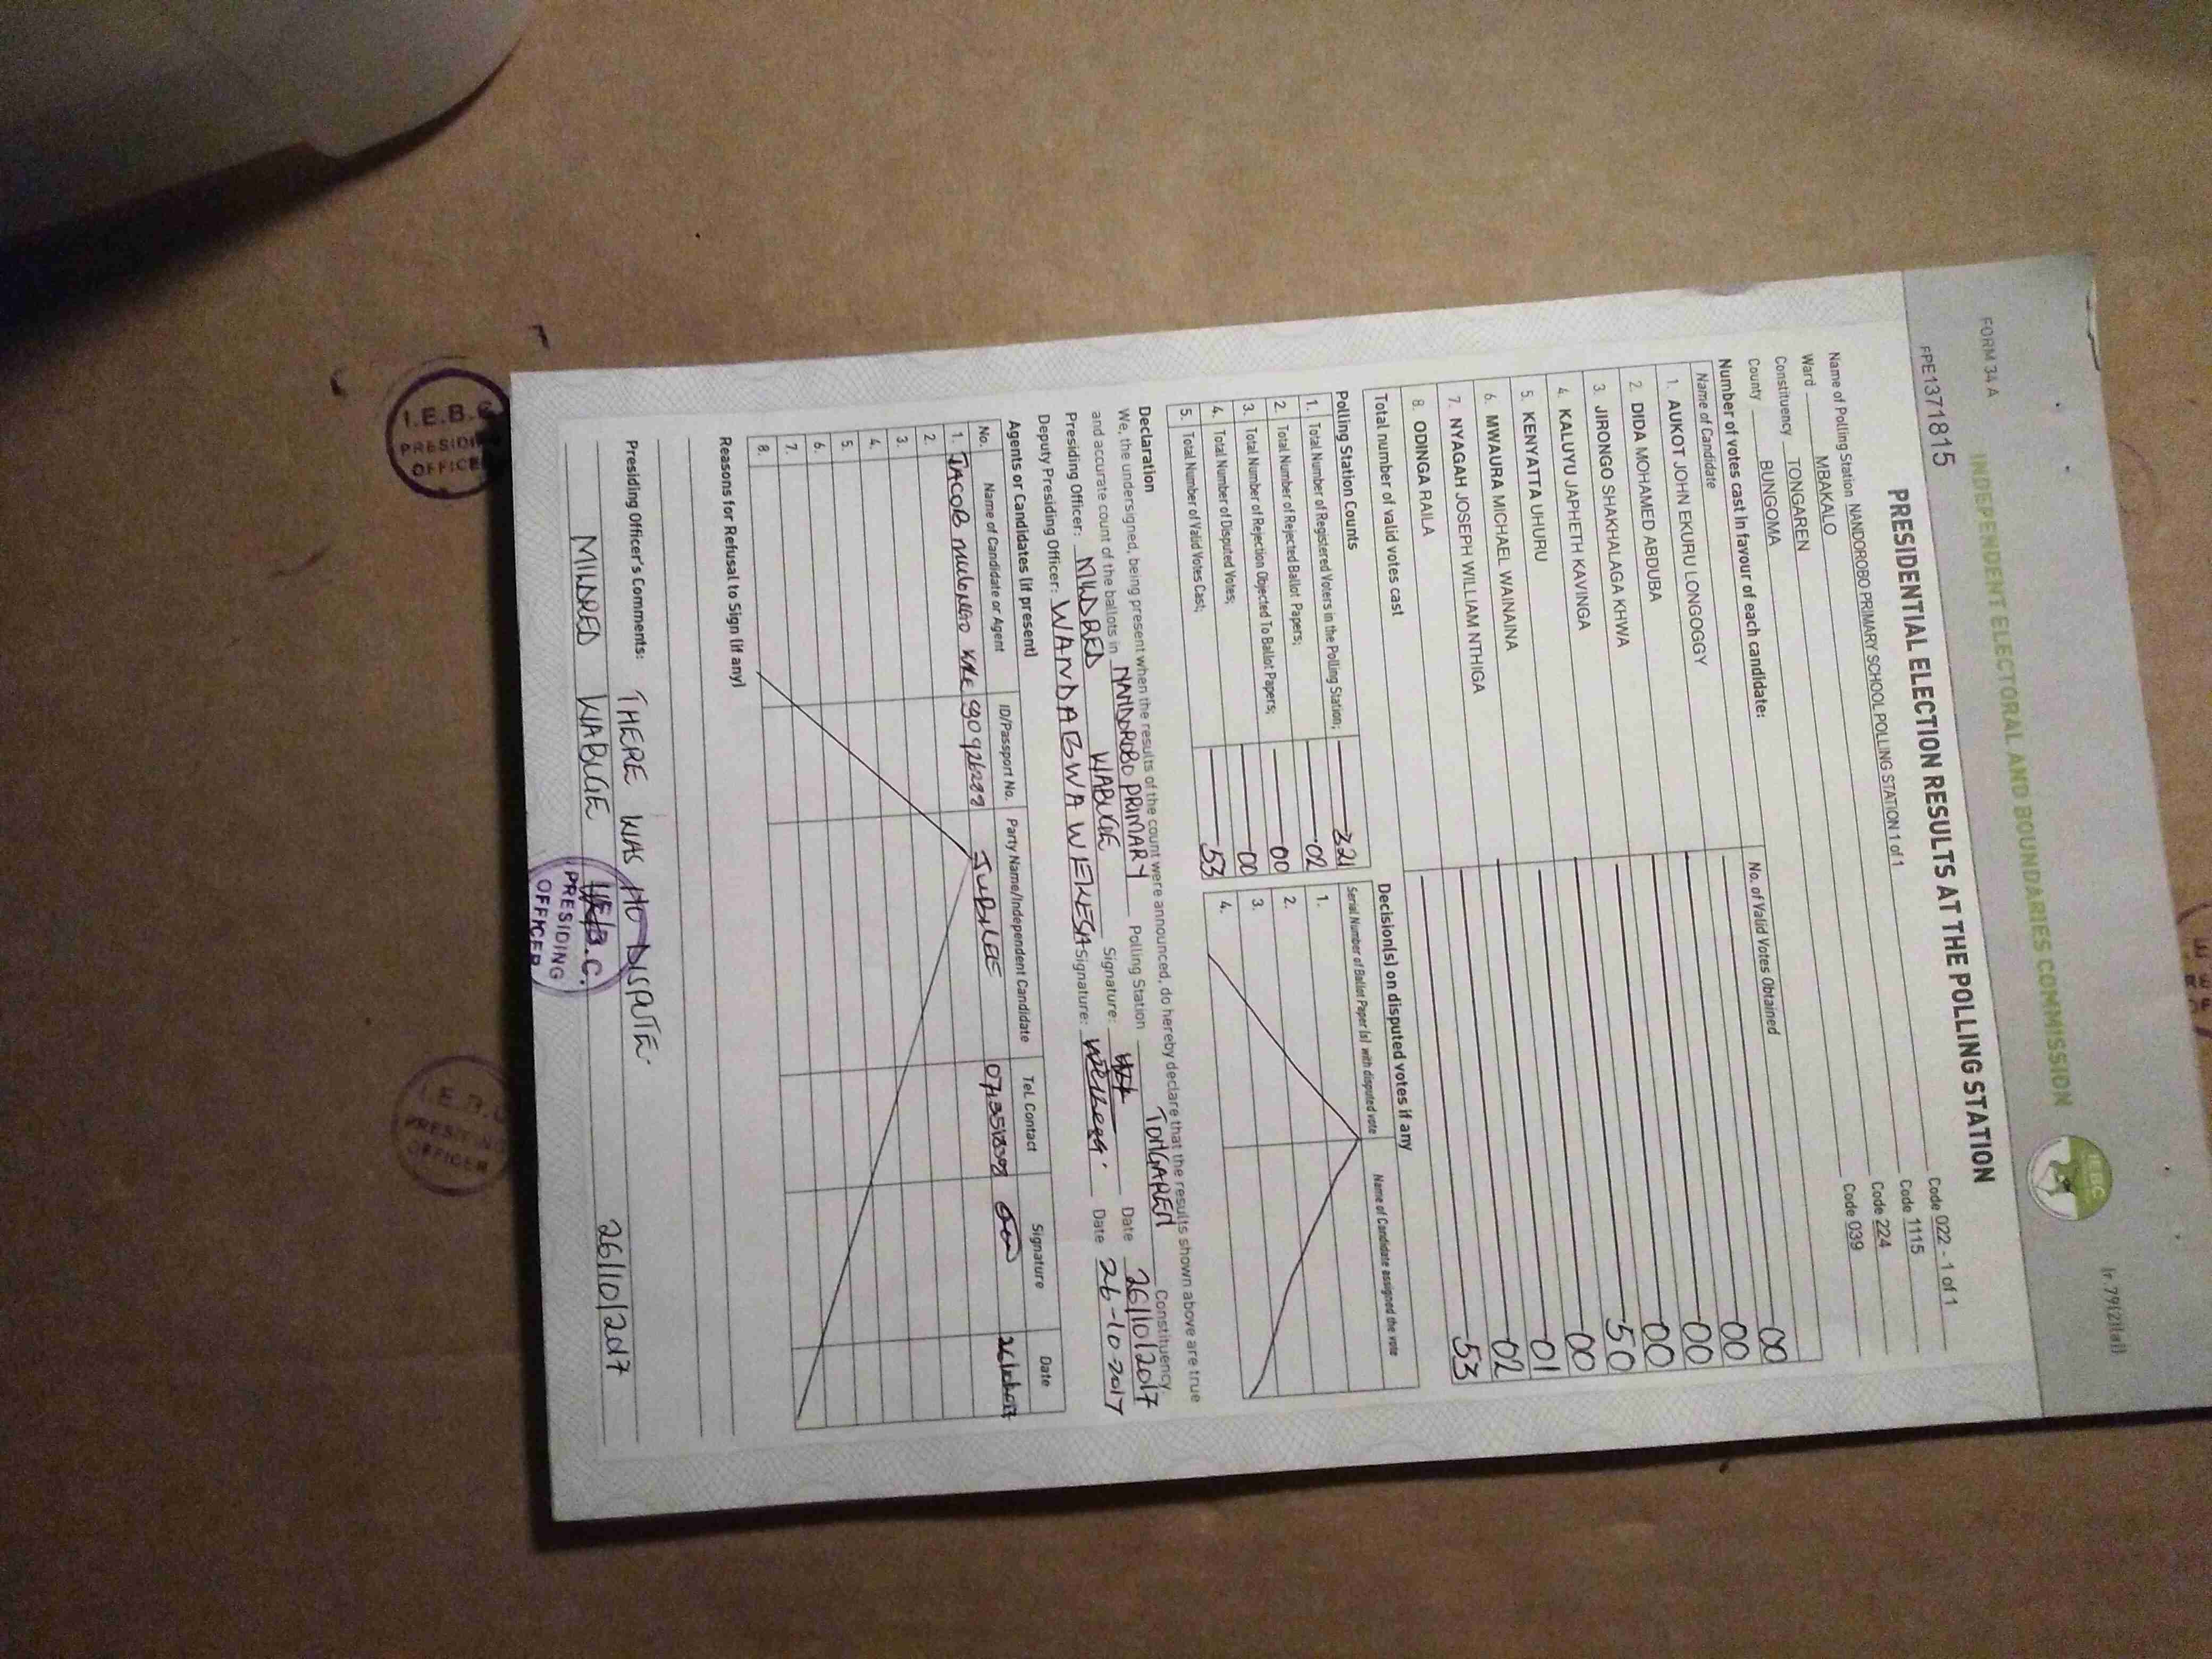 Ir. 79(2)(a)
FORM 34 A
INDEPENDENT ELECTORAL AND BOUNDARIES COMMISSION
IEBC
FPE1371815
PRESIDENTIAL ELECTION RESULTS AT THE POLLING STATION
Name of Polling Station NANDOROBO PRIMARY SCHOOL POLLING STATION 1 of 1 Code 022 - 1 of 1
Ward MBAKALO Code 1115
Constituency TONGAREN Code 224
County BUNGOMA Code 039
Number of votes cast in favour of each candidate:
Name of Candidate No. of Valid Votes Obtained
1. AUKOT JOHN EKURU LONGOGGY 00
2. DIDA MOHAMED ABDUBA 00
3. JIRONGO SHAKHALAGA KHWA 00
4. KALUYU JAPHETH KAVINGA 00
5. KENYATTA UHURU 50
6. MWAURA MICHAEL WAINAINA 00
7. NYAGAH JOSEPH WILLIAM NTHIGA 01
8. ODINGA RAILA 02
Total number of valid votes cast 53
Polling Station Counts
1. Total Number of Registered Voters in the Polling Station; 321
2. Total Number of Rejected Ballot Papers; 02
3. Total Number of Rejection Objected To Ballot Papers; 00
4. Total Number of Disputed Votes; 00
5. Total Number of Valid Votes Cast; 53
Decision(s) on disputed votes if any
Serial Number of Ballot Paper (s) with disputed vote Name of Candidate assigned the vote
1.
2.
3.
4.
Declaration
We, the undersigned, being present when the results of the count were announced, do hereby declare that the results shown above are true
and accurate count of the ballots in NANDOROBO PRIMARY Polling Station TONGAREN Constituency.
Presiding Officer: MILDRED WABUGE Signature: Date 26/10/2017
Deputy Presiding Officer: WANDABWA WEKESA Signature: Date 26-10-2017
Agents or Candidates (if present)
No. Name of Candidate or Agent ID/Passport No. Party Name/Independent Candidate Tel. Contact Signature Date
1. JACOB JUBILEE
2.
3.
4.
5.
6.
7.
8.
Reasons for Refusal to Sign (if any)
Presiding Officer's Comments: THERE WAS NO DISPUTE.
MILDRED WABUGE 26/10/2017
I.E.B.C.
PRESIDING
OFFICER
I.E.B.C
PRESIDING
OFFICE
I.E.B.C
PRESIDING
OFFICER